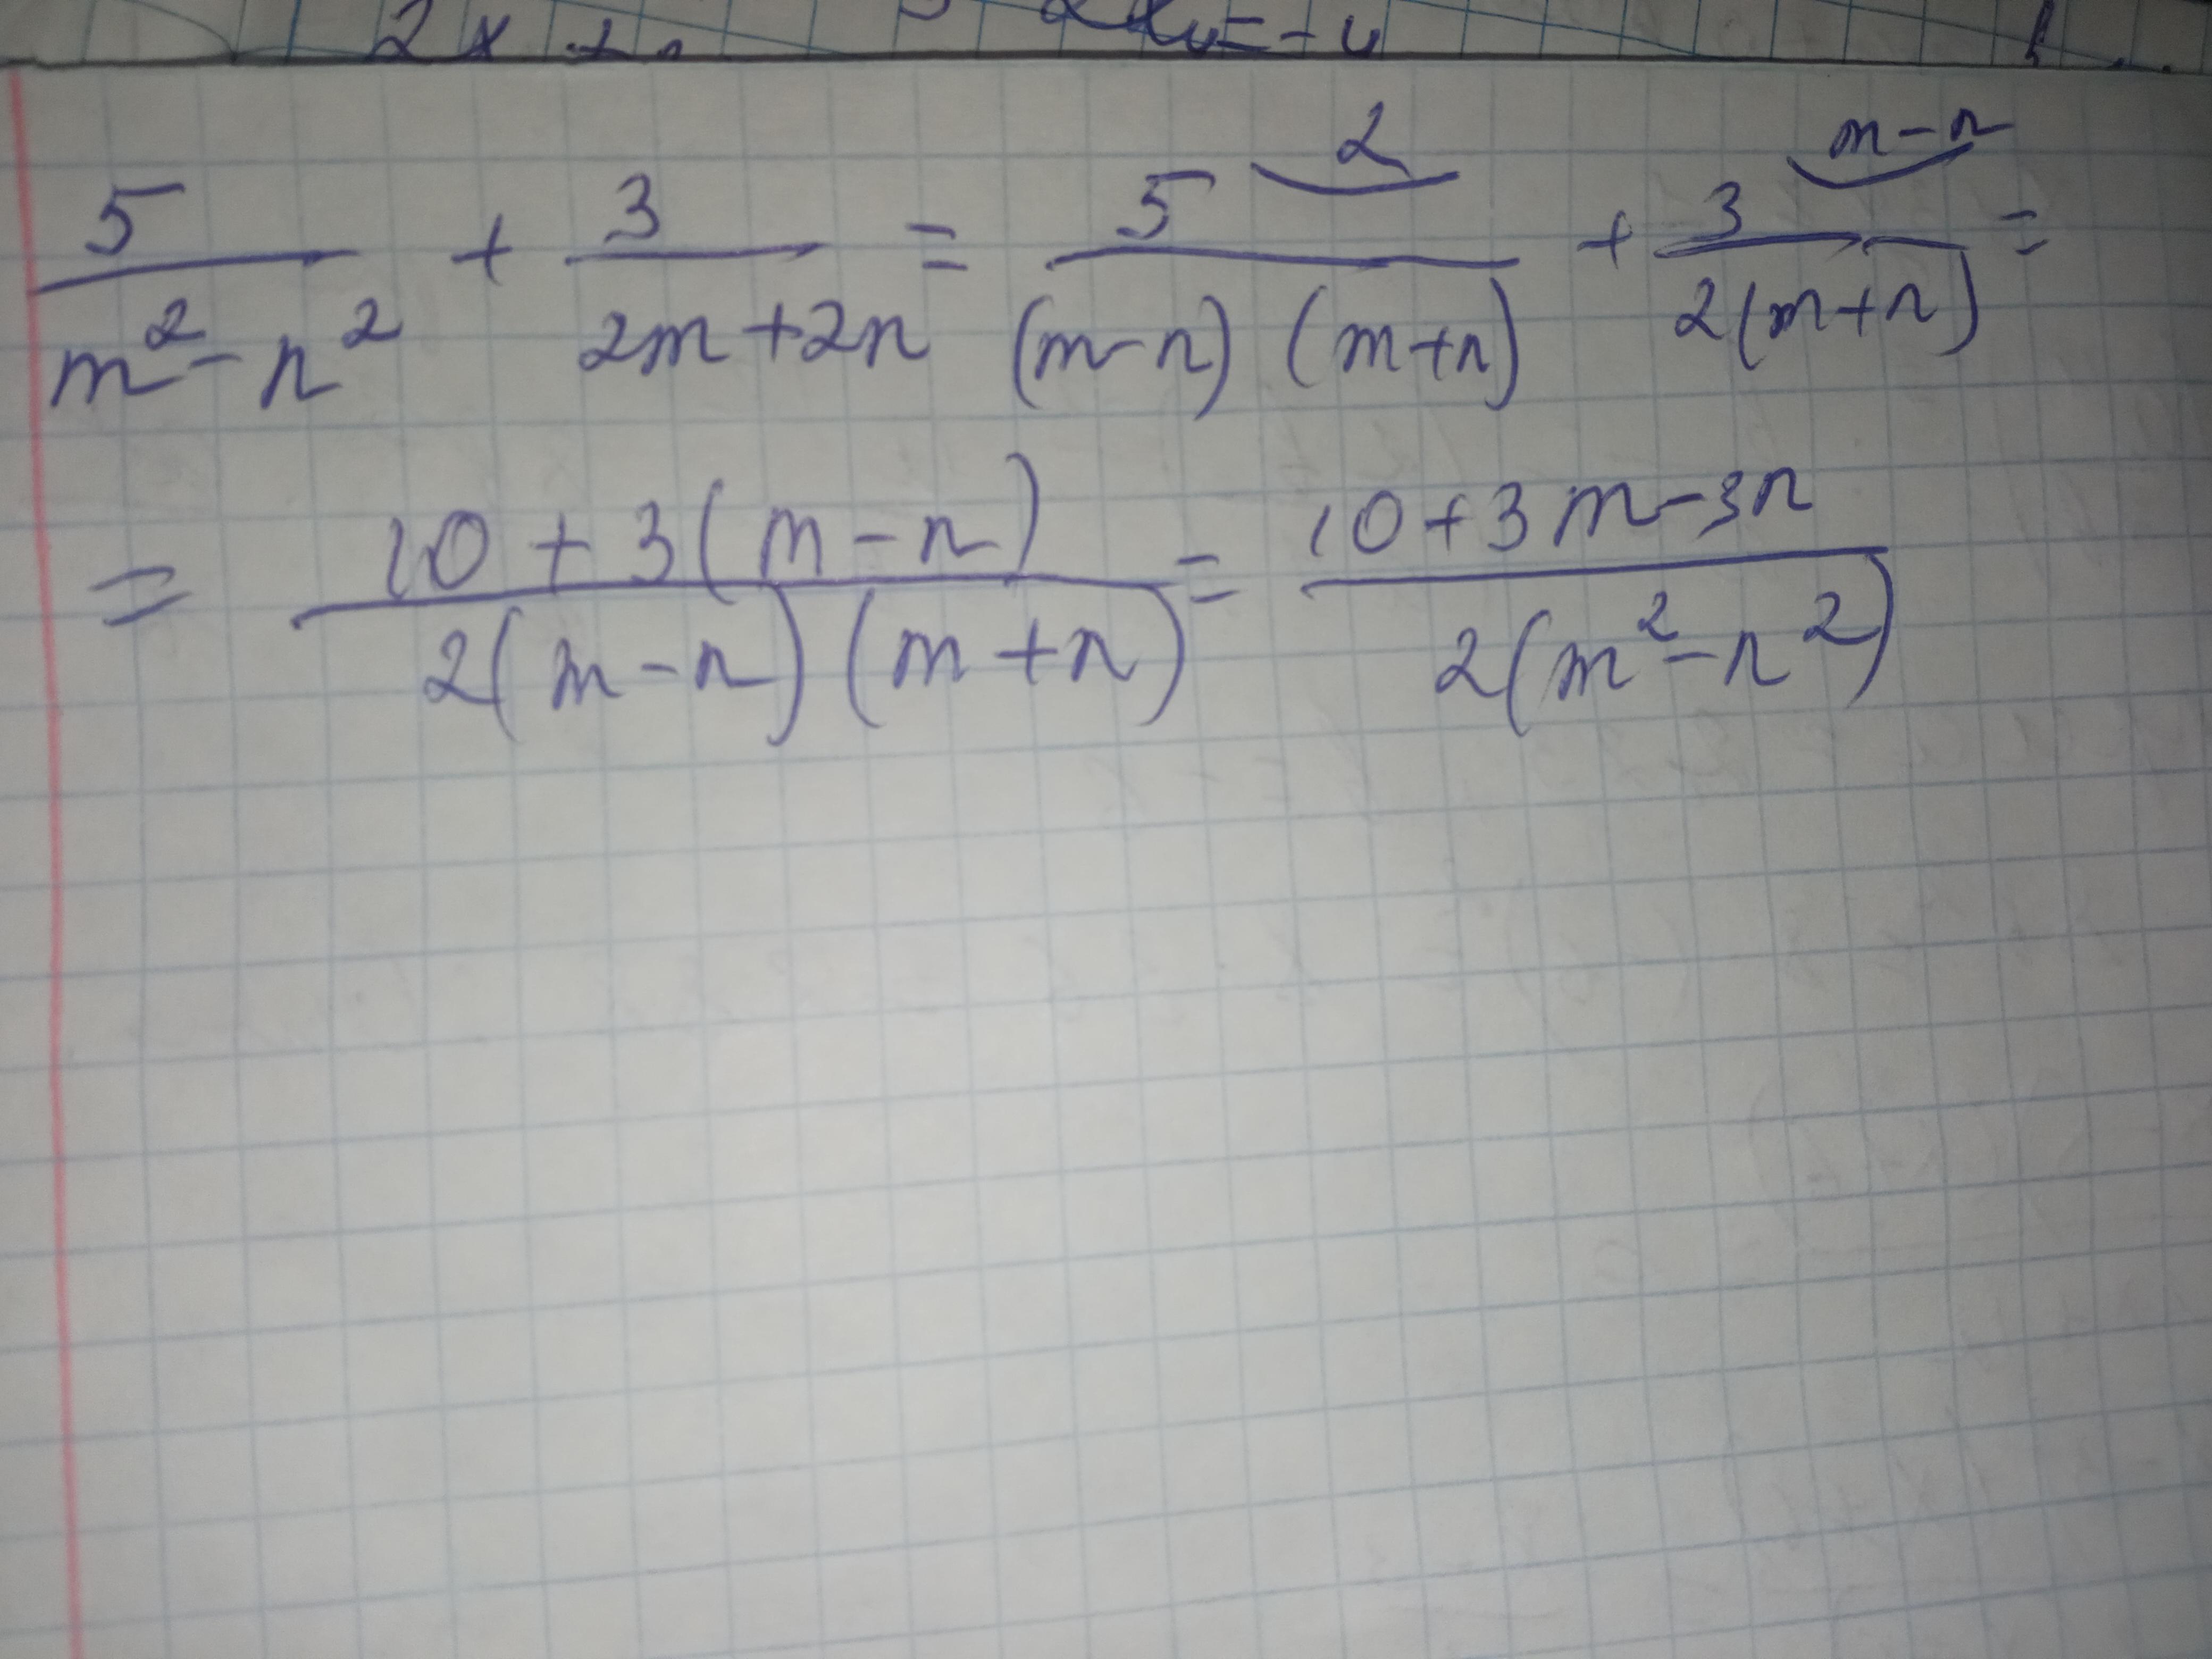 2x +
2x₄ = -4
5/(m² - n²) + 3/(2m + 2n) = 5 ⌣2/((m - n) (m + n)) + 3 ⌣m - n/(2(m + n)) =
= (10 + 3(m - n))/(2(m - n)(m + n)) = (10 + 3m - 3n)/(2(m² - n²))